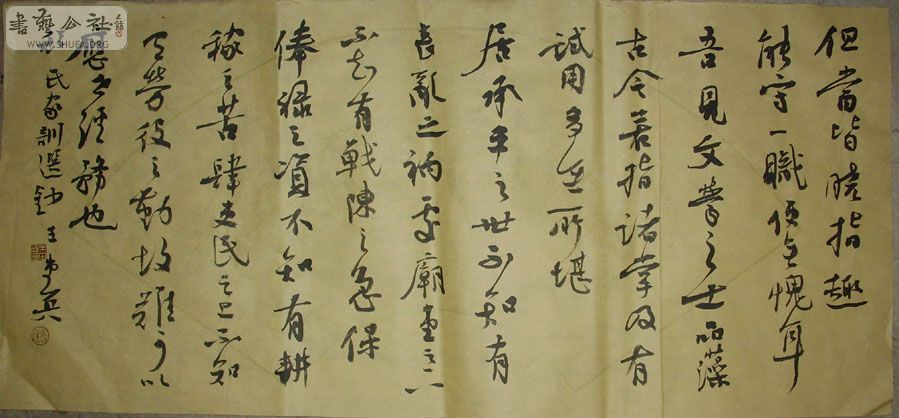 但當皆曉指趣
能守一職便無愧耳
吾見文學之士品藻
古今若指諸掌及有
試用多無所堪
居承平之世不知有
喪亂之禍處廟堂之下
不知有戰陳之急保
俸祿之資不知有耕
稼之苦肆吏民之上不知
有勞役之勤故難可以
應世經務也
顏氏家訓選鈔 王
書藝公社
WWW.SHUFA.ORG